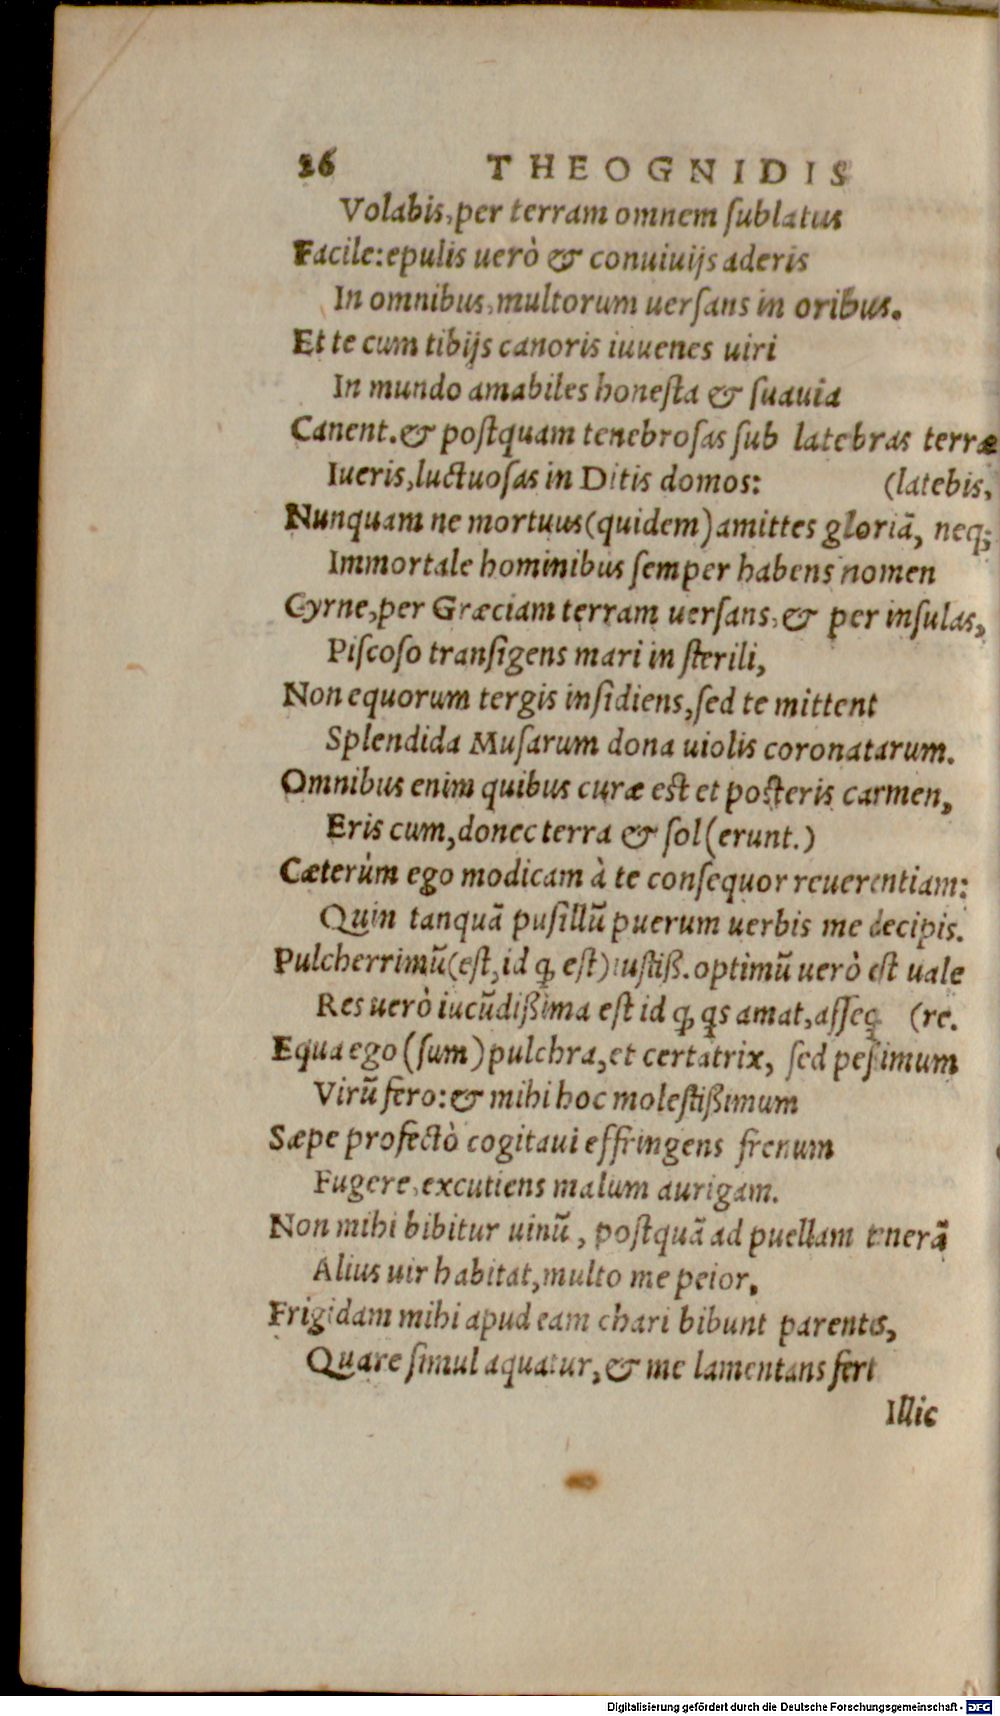 26 THEOGNIDIS
Volabis, per terram omnem ſublatus
Facile: epulis uerò & conuiuijs aderis
In omnibus, multorum uerſans in oribus.
Et te cum tibijs canoris iuuenes uiri
In mundo amabiles honeſta & ſuauia
Canent. & poſtquam tenebroſas ſub latebras terræ
Iueris, luctuoſas in Ditis domos: (latebis,
Nunquam ne mortuus (quidem) amittes gloriā, neq;
Immortale hominibus ſemper habens nomen
Cyrne, per Græciam terram uerſans, & per inſulas,
Piſcoſo tranſigens mari in ſterili,
Non equorum tergis inſidiens, ſed te mittent
Splendida Muſarum dona uiolis coronatarum.
Omnibus enim quibus curæ est et poſteris carmen,
Eris cum, donec terra & ſol (erunt.)
Cæterùm ego modicam à te conſequor reuerentiam:
Quin tanquā puſillū puerum uerbis me decipis.
Pulcherrimū (eſt, id ꝙ eſt) iuſtiß. optimū uerò eſt uale
Res uerò iucūdißima eſt id ꝙ qs amat, aſſeq (re.
Equa ego (ſum) pulchra, et certatrix, ſed peſsimum
Virū fero: & mihi hoc moleſtißimum
Sæpe profectò cogitaui effringens frenum
Fugere, excutiens malum aurigam.
Non mihi bibitur uinū, poſtquā ad puellam tenerā
Alius uir habitat, multo me peior.
Frigidam mihi apud eam chari bibunt parentes,
Quare ſimul aquatur, & me lamentans fert
Illic
Digitalisierung gefördert durch die Deutsche Forschungsgemeinschaft - DFG